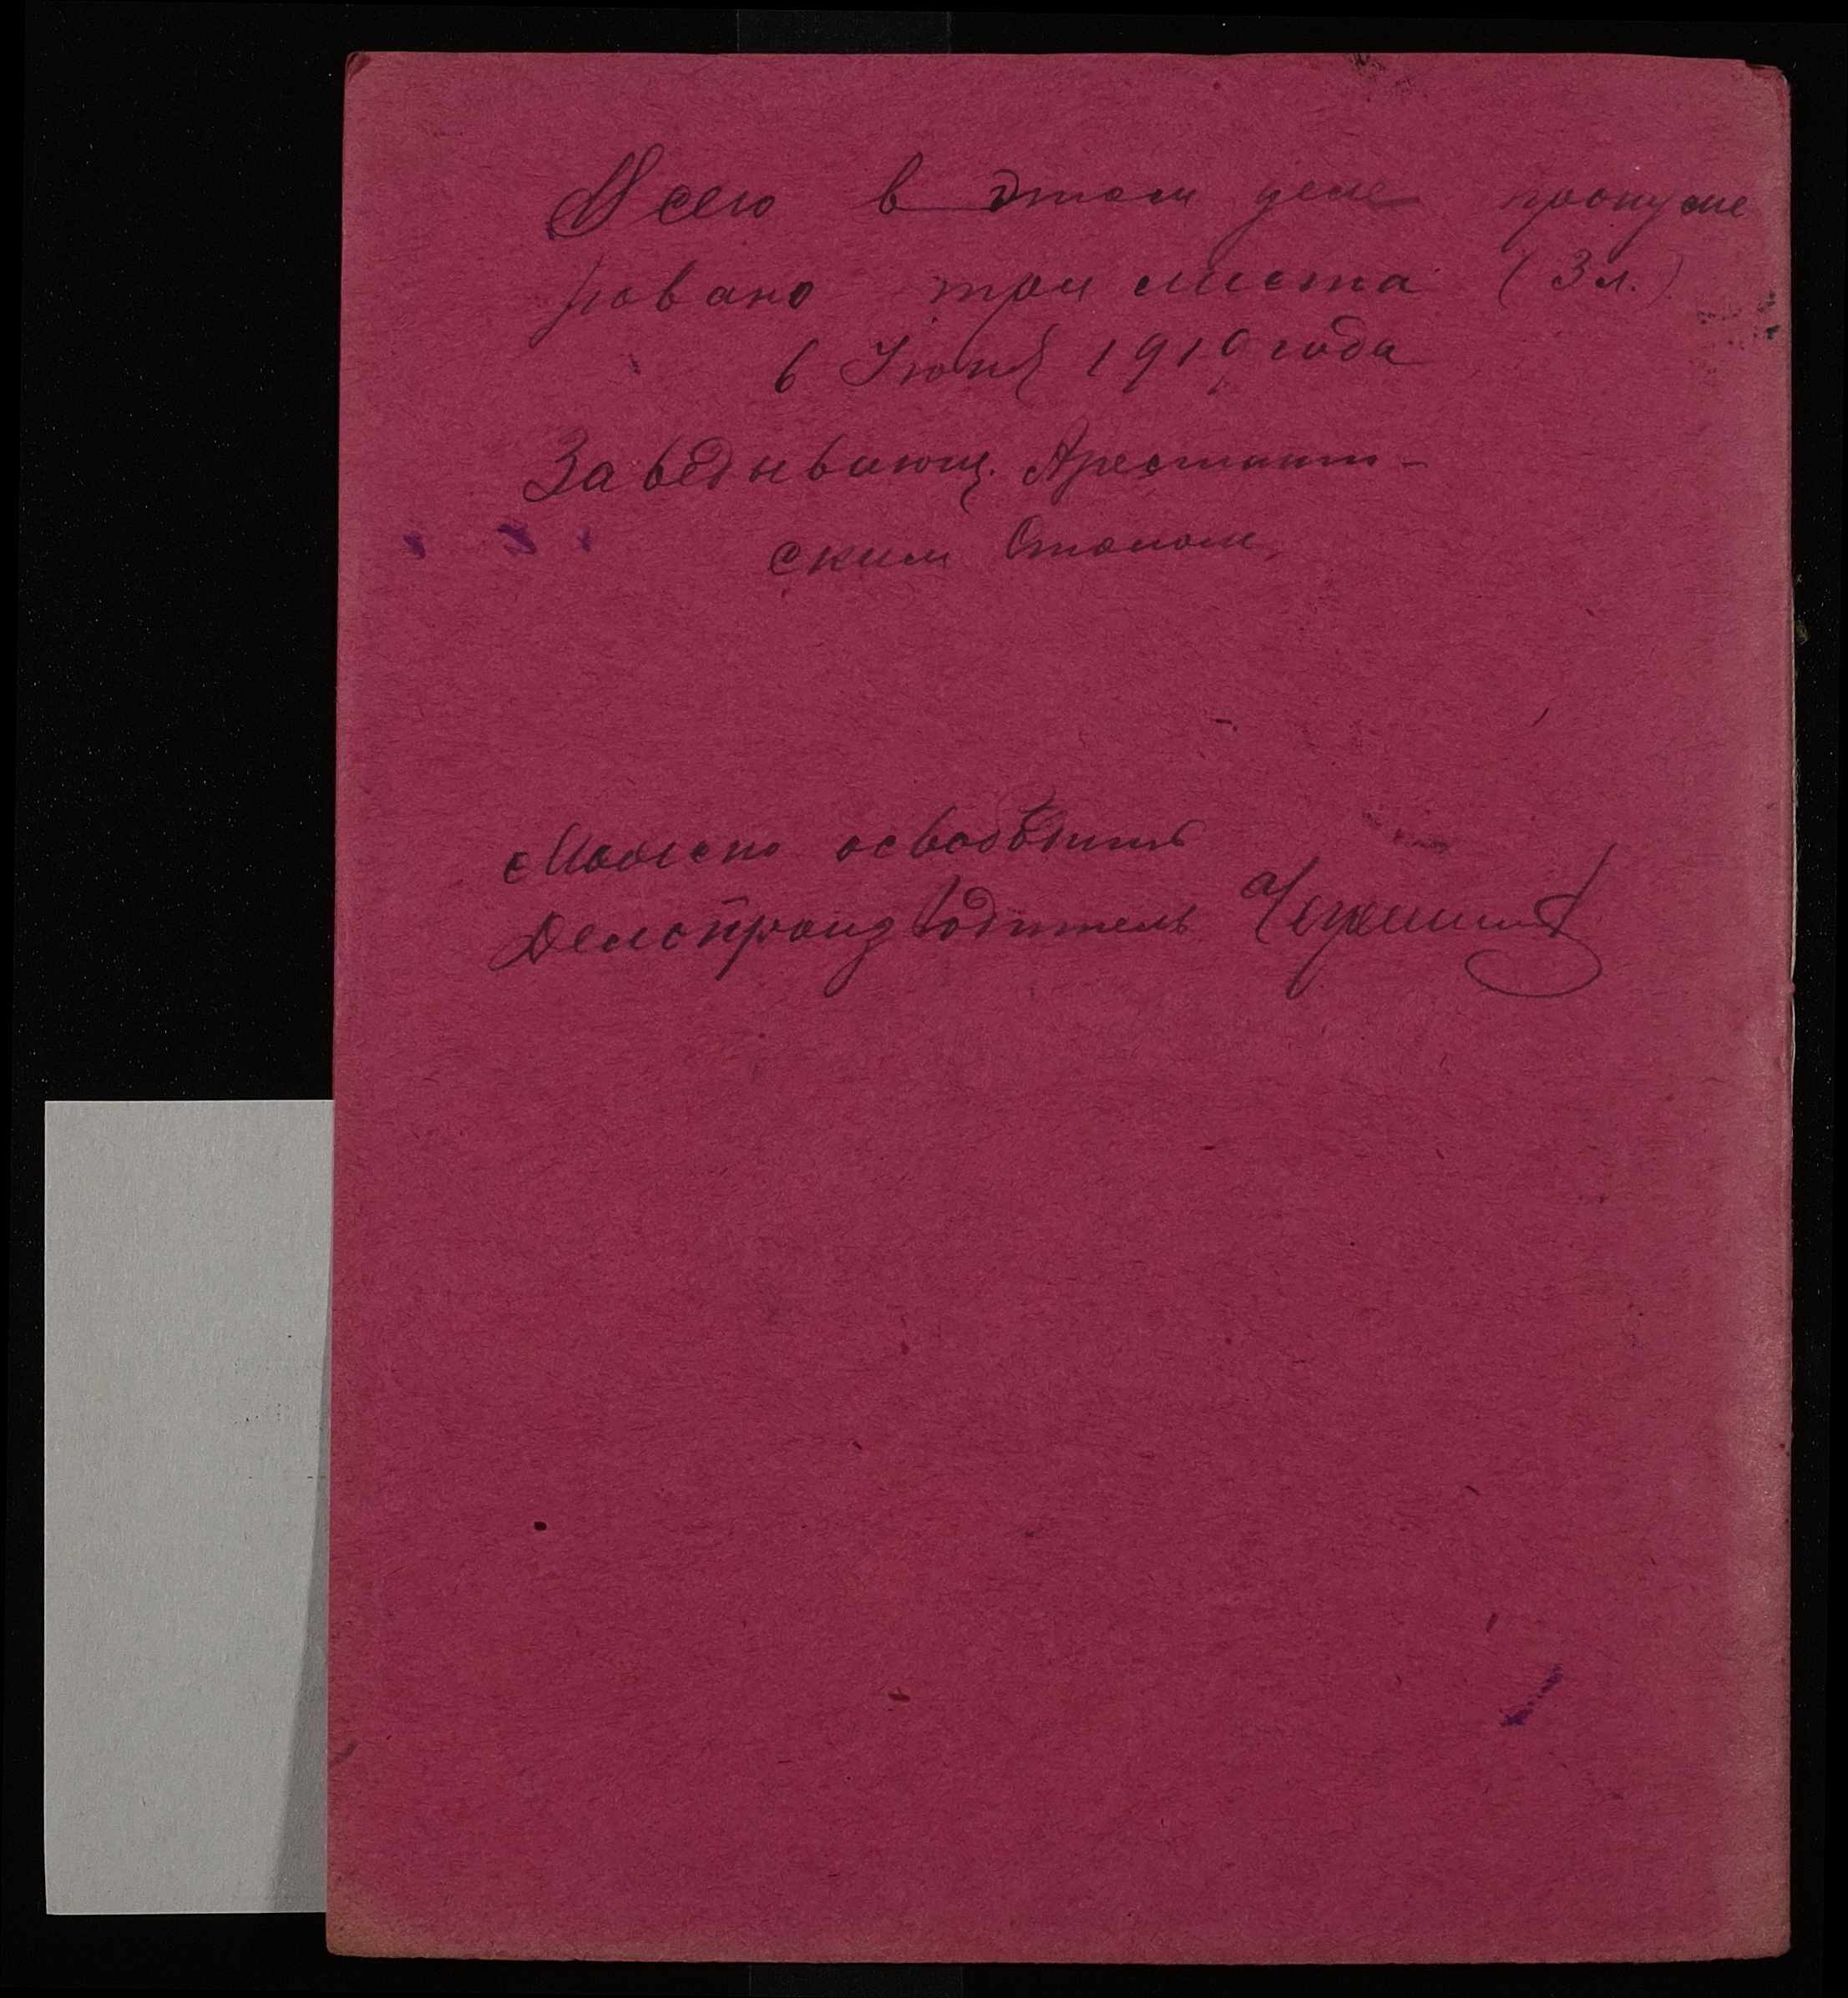 Всего в этом деле пронуме
ровано три листа (3 л.)
6 Июня 1919 года
Заведывающ. Арестант-
ским Столом
Можно освободить
Делопроизводитель